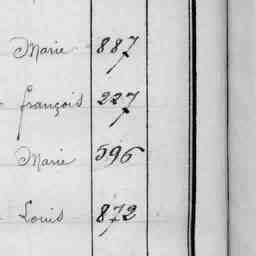 Marie 887
françois 227
Marie 596
Louis 872